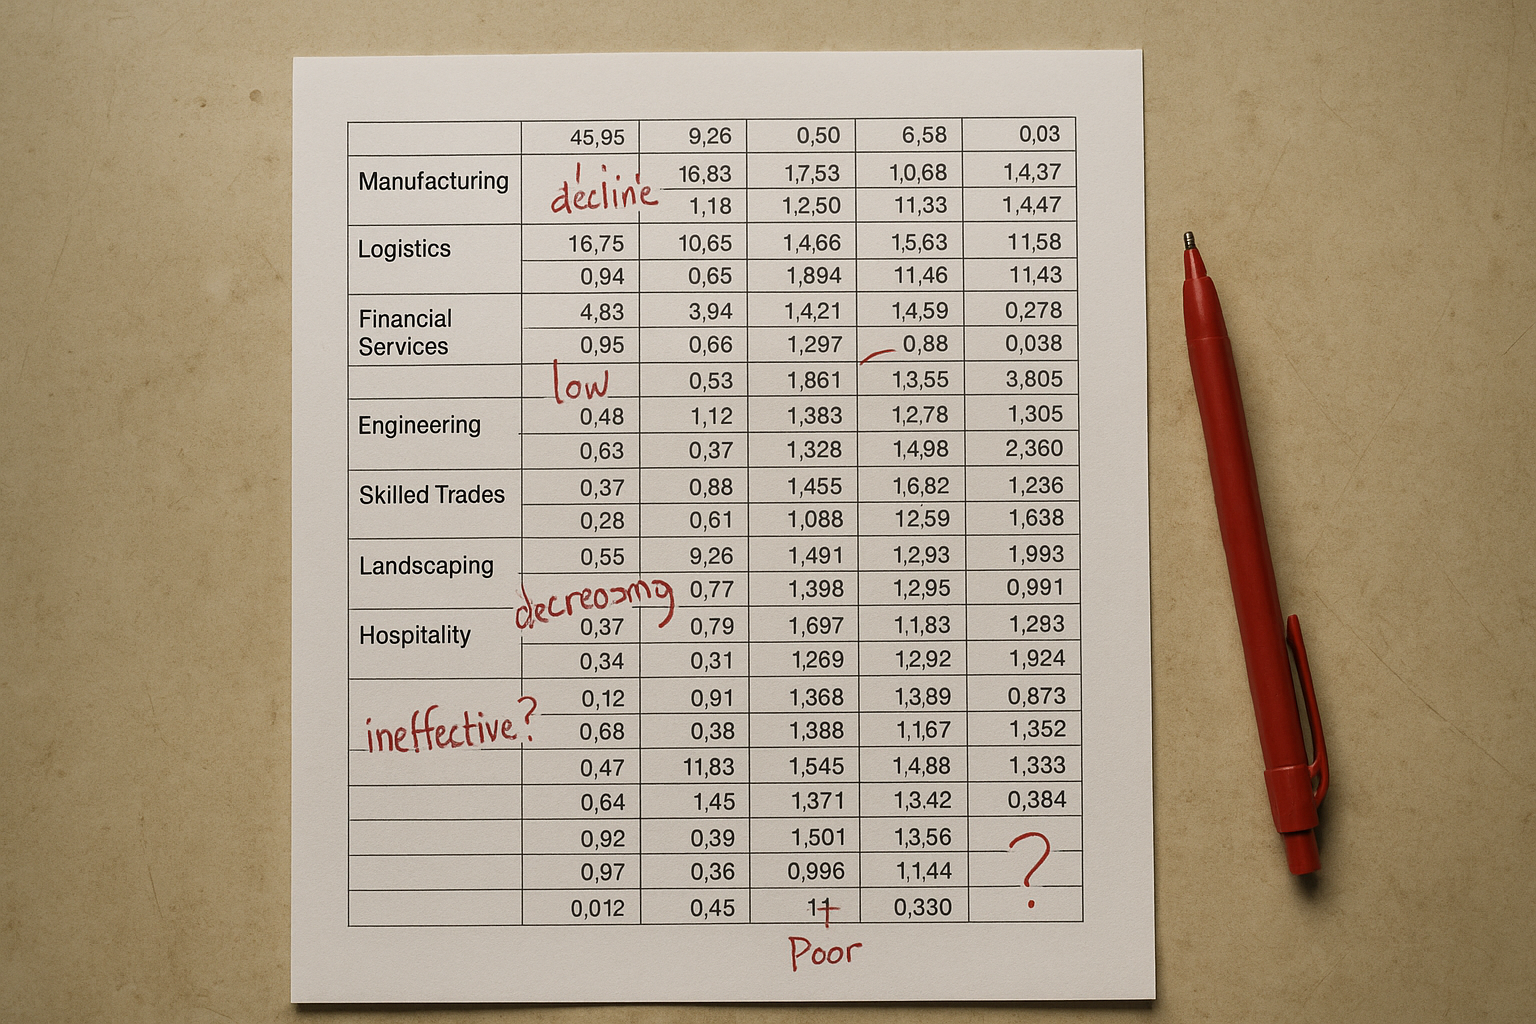 45,95 9,26 0,50 6,58 0,03
Manufacturing decline 16,83 1,7,53 1,0,68 1,4,37
1,18 1,2,50 11,33 1,4,47
Logistics 16,75 10,65 1,4,66 1,5,63 11,58
0,94 0,65 1,894 11,46 11,43
Financial 4,83 3,94 1,4,21 1,4,59 0,278
Services 0,95 0,66 1,297 0,88 0,038
low 0,53 1,861 1,3,55 3,805
Engineering 0,48 1,12 1,383 1,2,78 1,305
0,63 0,37 1,328 1,4,98 2,360
Skilled Trades 0,37 0,88 1,455 1,6,82 1,236
0,28 0,61 1,088 12,59 1,638
Landscaping 0,55 9,26 1,491 1,2,93 1,993
decreasing 0,77 1,398 1,2,95 0,991
Hospitality 0,37 0,79 1,697 1,1,83 1,293
0,34 0,31 1,269 1,2,92 1,924
0,12 0,91 1,368 1,3,89 0,873
ineffective? 0,68 0,38 1,388 1,1,67 1,352
0,47 11,83 1,545 1,4,88 1,333
0,64 1,45 1,371 1,3,42 0,384
0,92 0,39 1,501 1,3,56
0,97 0,36 0,996 1,1,44 ?
0,012 0,45 11 0,330
Poor